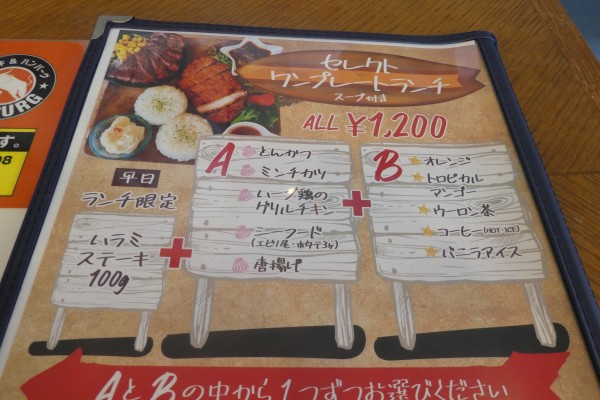 キ & ハンバーグ
URG
す。
98
セレクト
ワンプレートランチ
スープ付き
ALL ¥1,200
平日
ランチ限定
ハラミ
ステーキ
100g
+
A
とんかつ
ミンチカツ
ハーブ鶏の
グリルチキン
シーフード
(エビ1尾・ホタテ3ヶ)
唐揚げ
+
B
オレンジ
トロピカル
マンゴー
ウーロン茶
コーヒー(HOT・ICE)
バニラアイス
AとBの中から1つずつお選びください